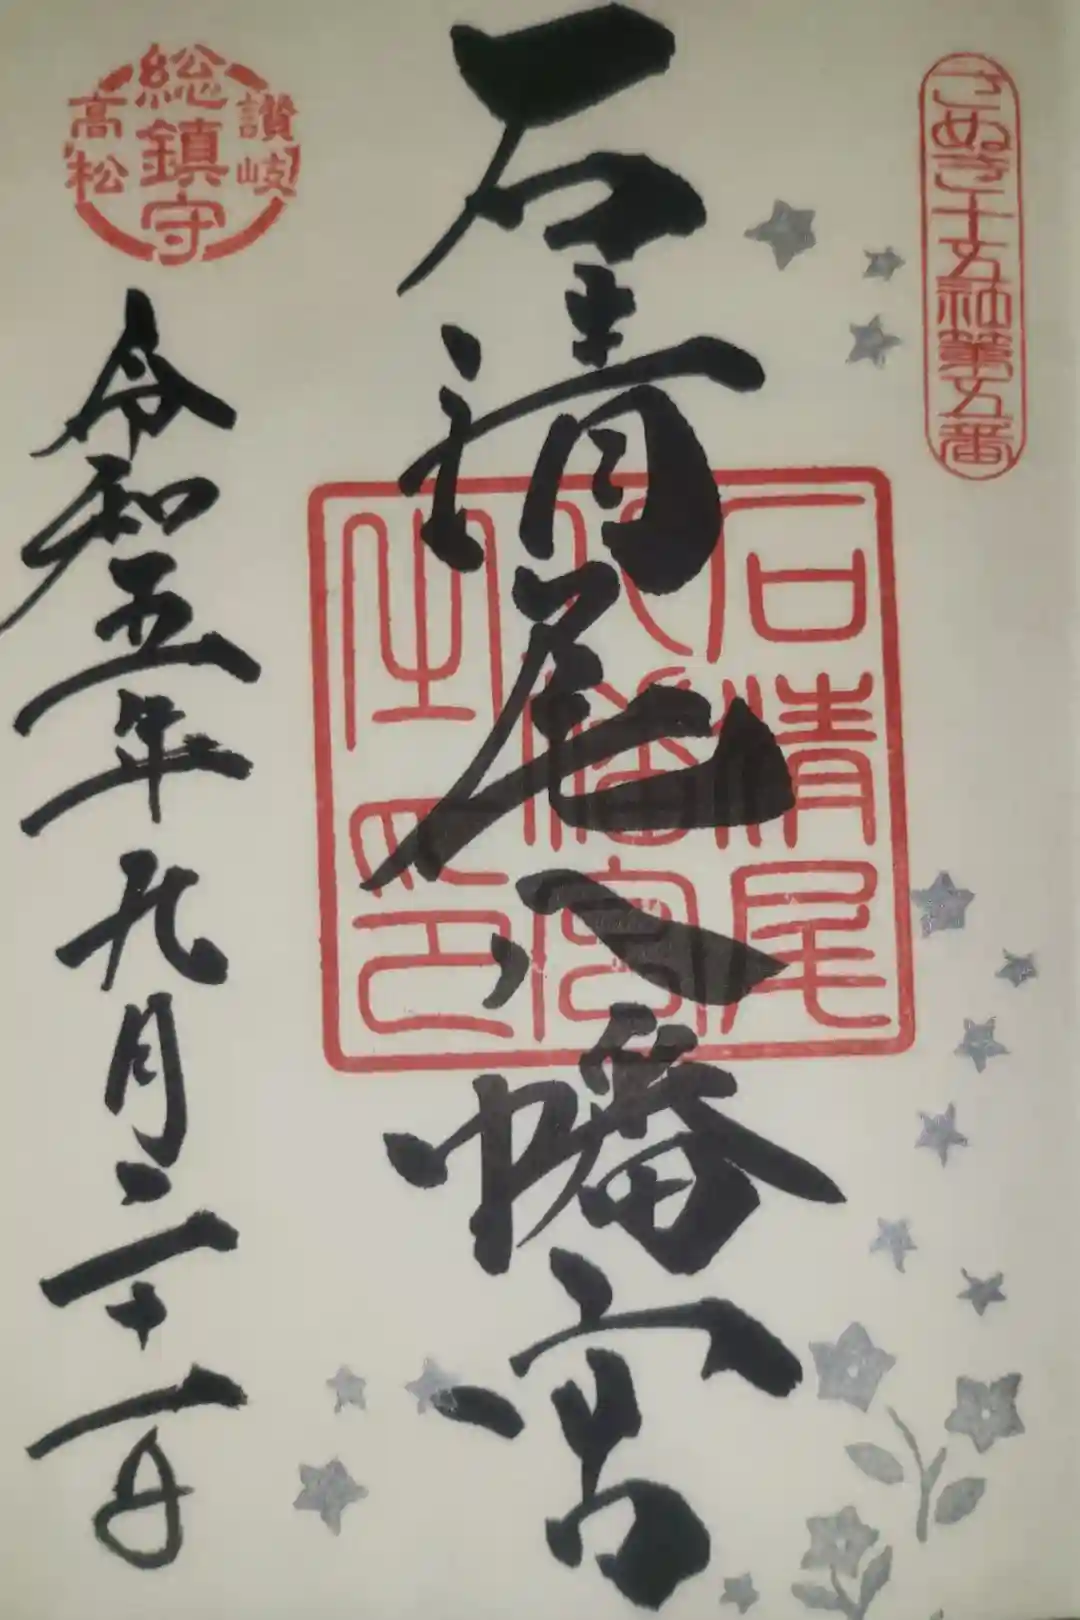 さぬき十五社第五番
石清尾八幡宮
石清尾
八幡宮
之印
讃岐
総鎮守
高松
令和五年九月二十一日